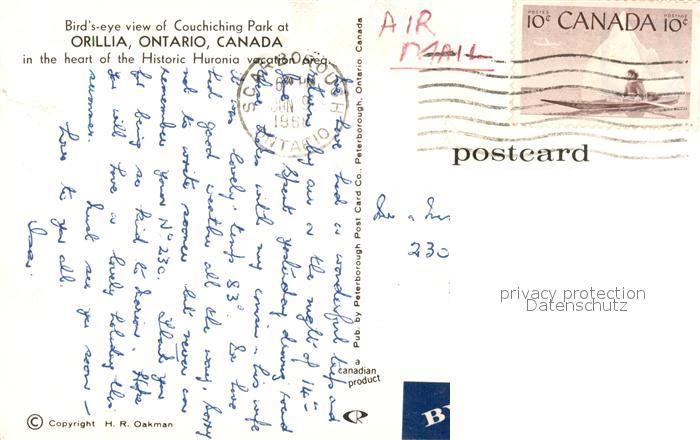 Bird's-eye view of Couchiching Park at
ORILLIA, ONTARIO, CANADA
in the heart of the Historic Huronia vacation area.
have had a wonderful trip and
return by air on the night of 14th
Spent yesterday driving round
lakes with my cousin & his wife
it was lovely temp 83°. So have
had good weather all the way, sorry
not to write sooner but never can
remember your No 230. Thank you
for being so kind to Marion. Hope
you will have a lovely holiday this
summer. Must see you soon –
Love to you all.
© Copyright H. R. Oakman
Pub. by Peterborough Post Card Co., Peterborough, Ontario, Canada
a
canadian
product
SCARBOROUGH
ONTARIO
AIR
MAIL
POSTES POSTAGE
10c CANADA 10c
postcard
230
privacy protection
Datenschutz
BY